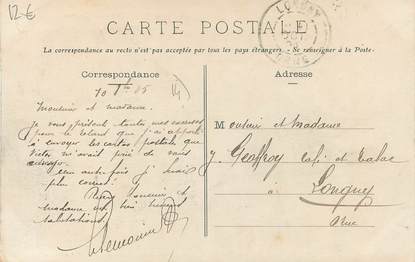 12€
CARTE POSTALE
La correspondance au recto n'est pas acceptée par tous les pays étrangers. Se renseigner à la Poste.
LONGNY
ORNE
Correspondance
Adresse
10 05
Monsieur et madame
Je vous présente toutes mes excuses
pour le retard que j'ai apporté
à envoyer les cartes postale que
Victor m'avait prié de vous
envoyer
une autre fois j'irais
plus
Recevez Monsieur et
madame mes
salutations
Monsieur et Madame
J. Geoffroy Café et Tabac
à Longny
Orne